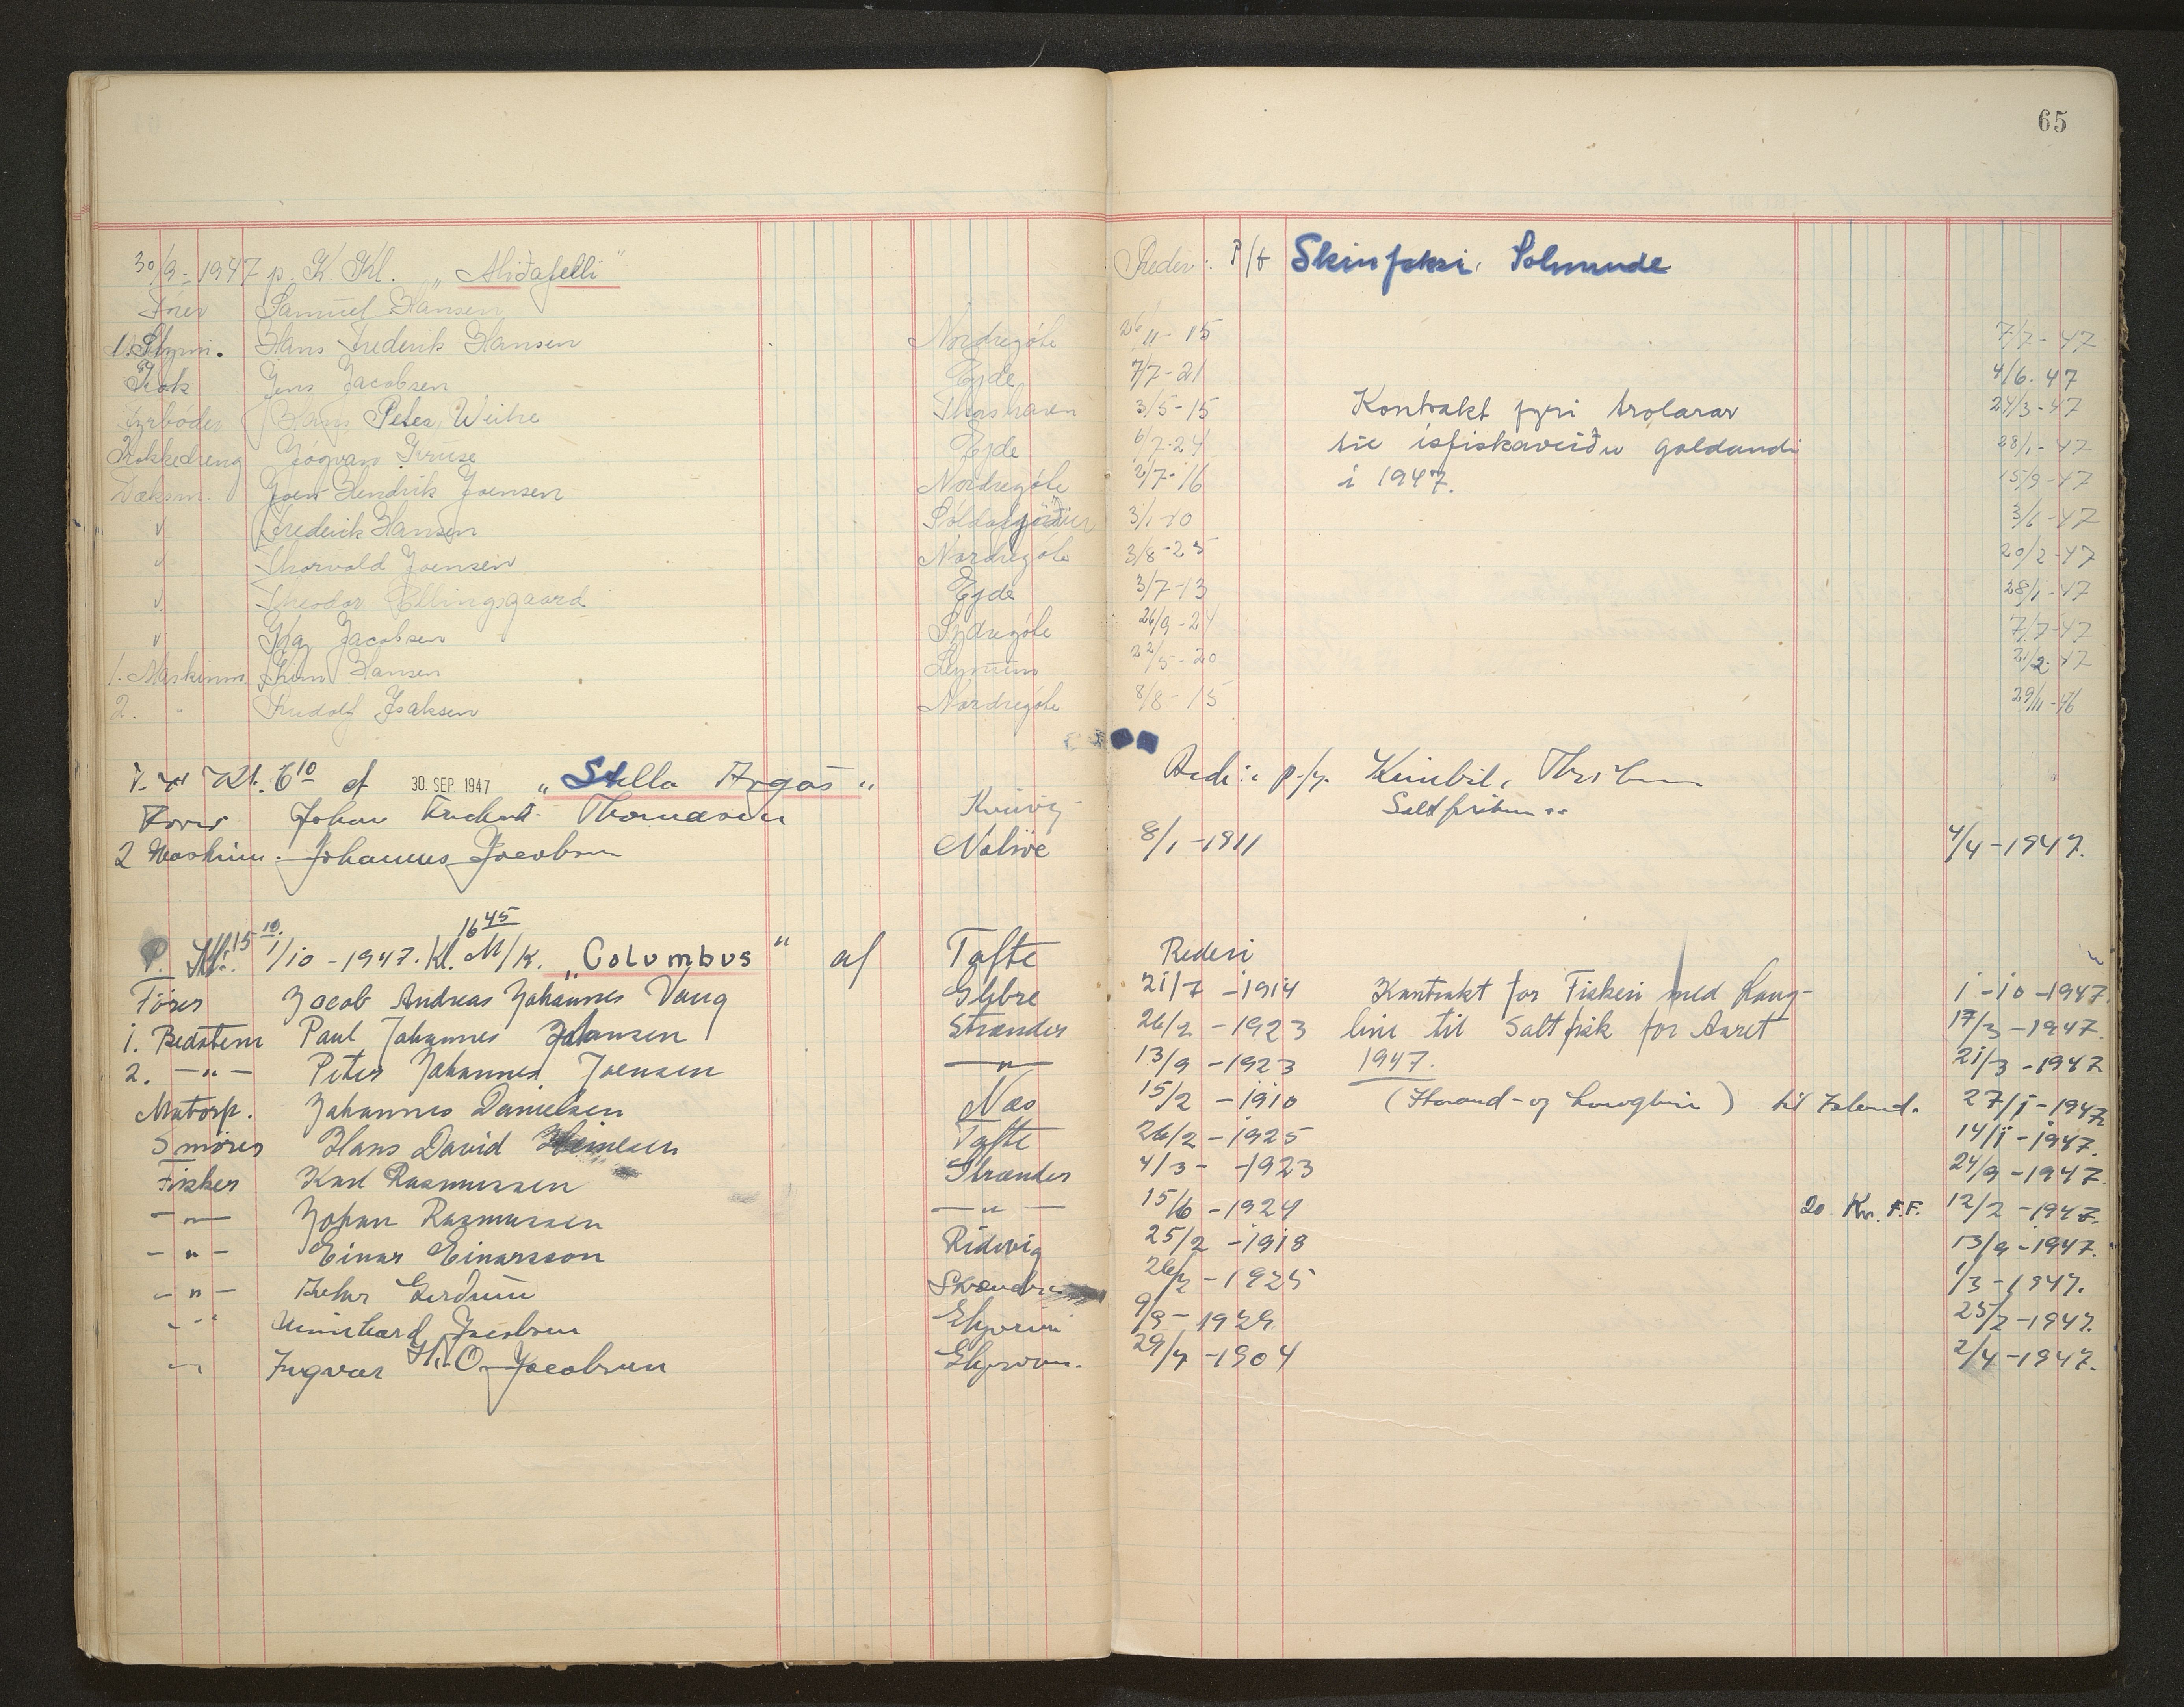 65
30/9-1947 p. K. Kl. „Sliðafelli" Reder: P/f Skinfaksi, Solmunde
Fører Samuel Hansen
1. Styrm. Hans Frederik Hansen Nordregöte 26/11-15 7/7-47
Kok Jens Jacobsen Ejde 7/7-21 4/6-47
Fyrböder Hans Peter Weihe Thorshavn 3/5-15 Kontrakt fyri trolarar 24/3-47
Kokkedreng Jógvan Kruse Ejde 6/7-24 til ísfiskaveiðu galdandi 28/1-47
Dæksm. Joen Hendrik Joensen Nordregöte 2/7-16 i 1947. 15/9-47
" Frederik Hansen 3/1-10 3/6-47
" Thorvald Joensen Nordregöte 3/8-25 20/2-47
" Theodor Ellingsgaard Ejde 3/7-13 28/1-47
" Jacobsen Sydregöte 26/9-24 7/7-47
1. Maskinm. Hansen 22/5-20 21/2-47
2. " Rudolf Isaksen Nordregöte 8/8-15 29/11-46
Kl. 6 10 30. SEP. 1947 „Stella Argos" Rederi: p/f.
Johan Thomasen Kvivig
2 Maskinm. Johannes Jacobsen Nolsöe 8/1-1911 4/4-1947.
16 45
P. Kl. 15 10. 1/10-1947. Kl. M/K. „Columbus" af Tofte Rederi
Förer Jacob Andreas Johannes Vang Glibre 21/7-1914 Kontrakt for Fiskeri med Lang- 1-10-1947.
1. Bedstem Paul Johannes Johansen Strænder 26/2-1923 line til Saltfisk for Aaret 17/3-1947.
2. —"— Peter Johannes Joensen —"— 13/9-1923 1947. 21/3-1947
Matorp. Johannes Danielsen Næs 15/2-1910 (Haand- og Langline) til Island. 27/1-1947
Smörer Hans David Heinesen Tofte 26/2-1925 14/1-1947.
Fisker Karl Rasmussen Strænder 4/3-1923 24/9-1947.
—"— Johan Rasmussen —"— 15/6-1924 20 Kr. F.F. 12/2-1947.
—"— Einar Einarsson Ridevig 25/2-1918 13/9-1947.
—"— 26/2-1925 1/3-1947.
—"— Meinhard Jacobsen 9/9-1929 25/2-1947.
—"— Ingvar H. O. Jacobsen 29/4-1904 2/4-1947.